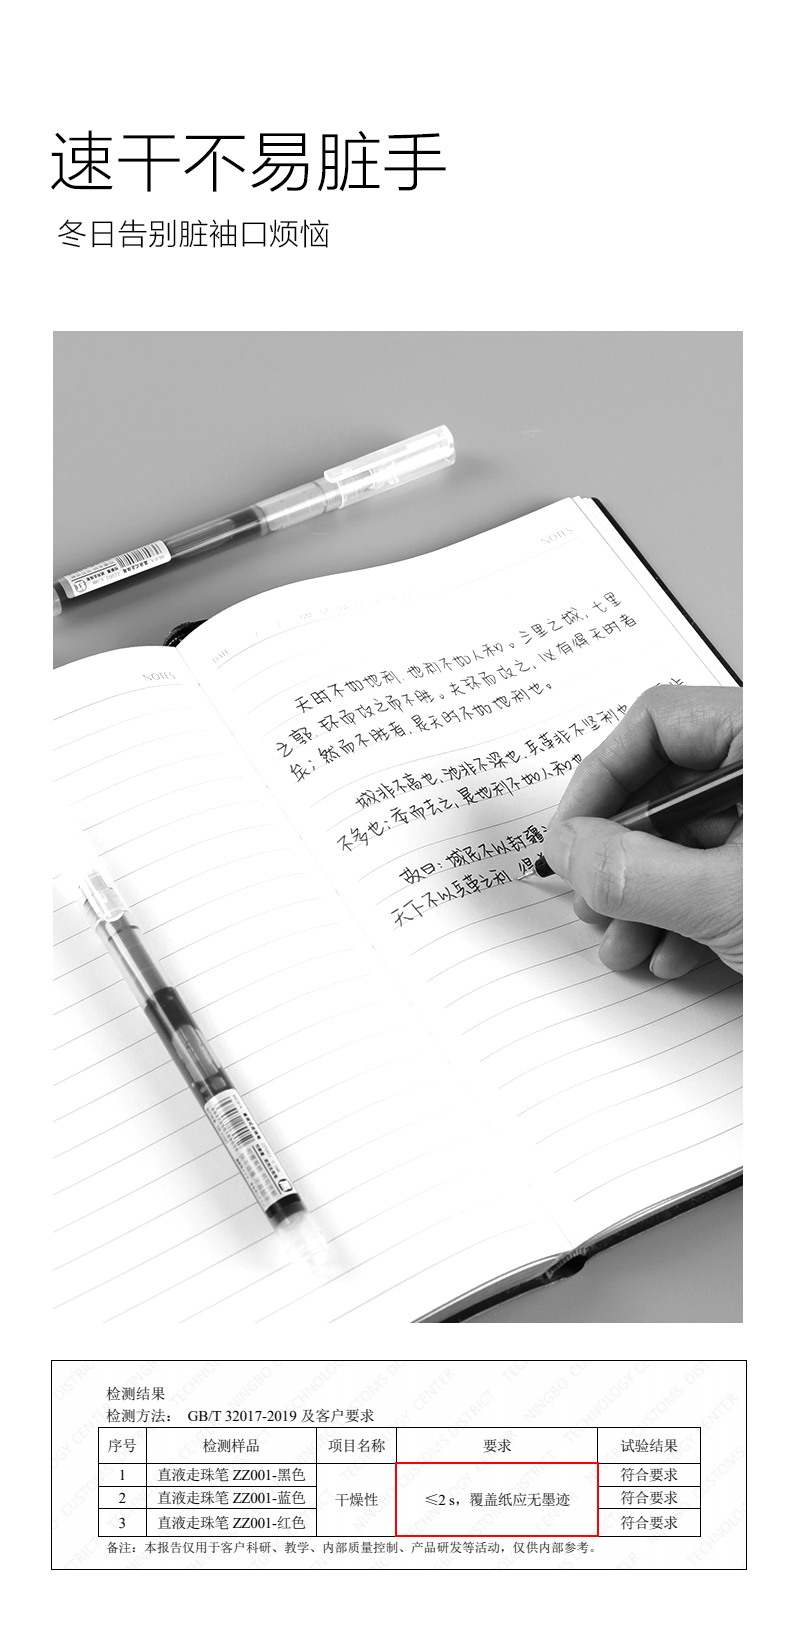 速干不易脏手
冬日告别脏袖口烦恼
NOTES
NOTES
DATE
天时不如地利,地利不如人和。三里之城,七里
之郭,环而攻之而不胜。夫环而攻之,必有得天时者
矣;然而不胜者,是天时不如地利也。
城非不高也,池非不深也,兵革非不坚利也
不多也;委而去之,是地利不如人和也
故曰:域民不以封疆
天下不以兵革之利 得
检测结果
检测方法: GB/T 32017-2019 及客户要求
序号 检测样品 项目名称 要求 试验结果
1 直液走珠笔 ZZ001-黑色 干燥性 ≤2 s,覆盖纸应无墨迹 符合要求
2 直液走珠笔 ZZ001-蓝色 符合要求
3 直液走珠笔 ZZ001-红色 符合要求
备注:本报告仅用于客户科研、教学、内部质量控制、产品研发等活动,仅供内部参考。